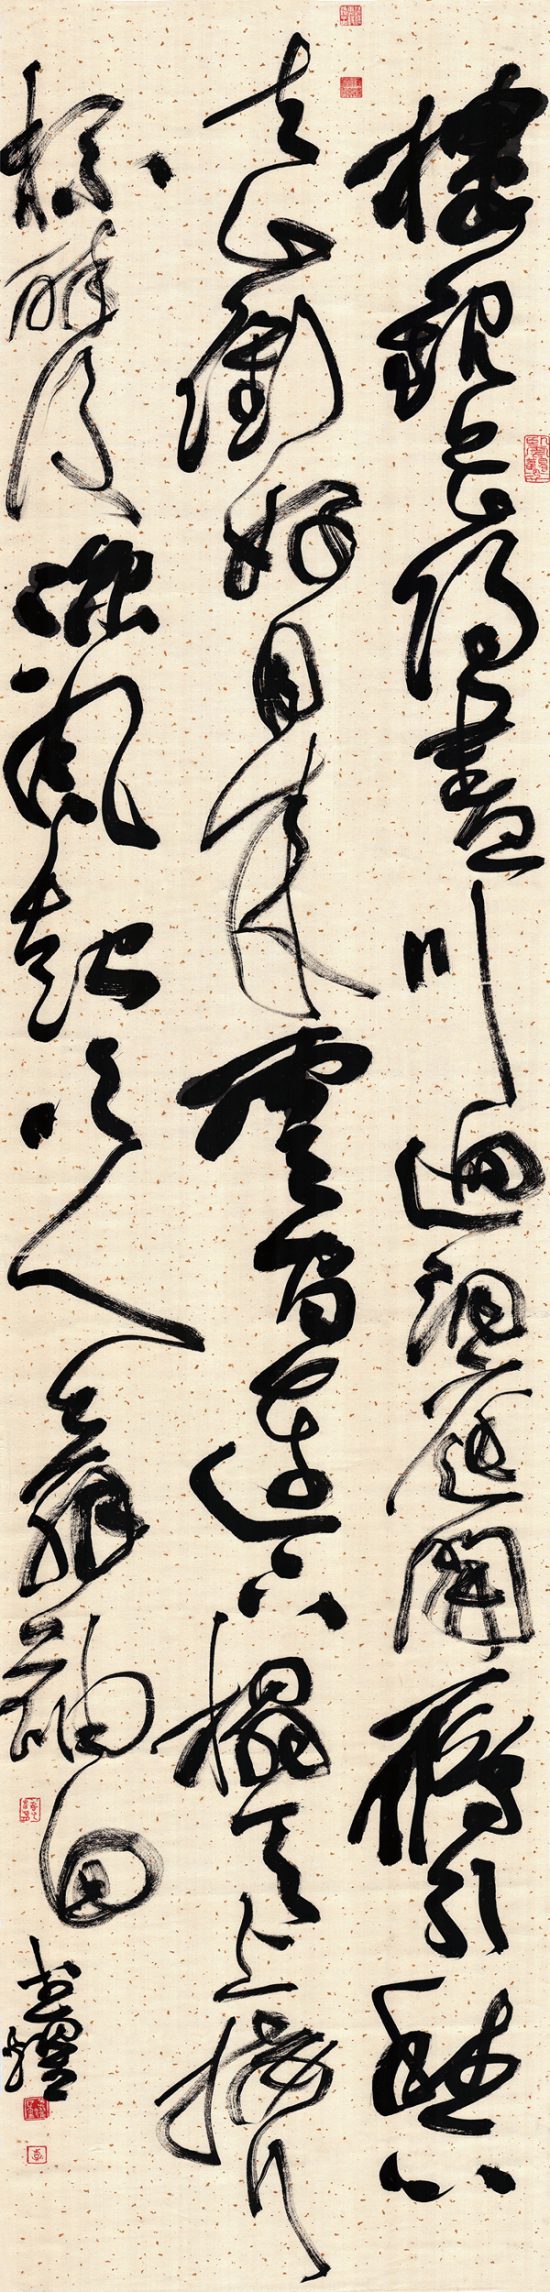 樓觀岳陽盡川迥洞庭開鴈引愁心
去山銜好月來雲間逢下榻天上接行
杯醉後涼風起吹人舞袖回